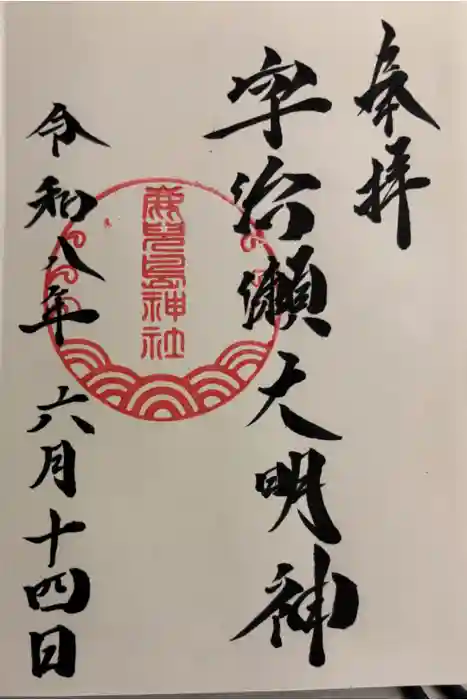 奉拝
宇治瀬大明神
鹿児島神社
令和八年六月十四日